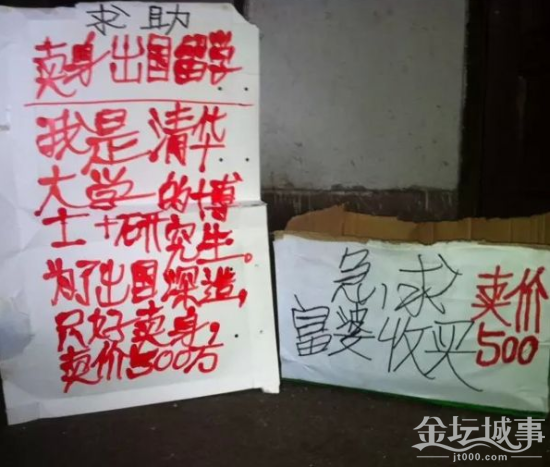 求助
卖身出国留学
我是清华
大学的博
士+研究生。
为了出国深造,
只好卖身,
卖价500万
急求
富婆收买
卖价
500
金坛城事
jt000.com